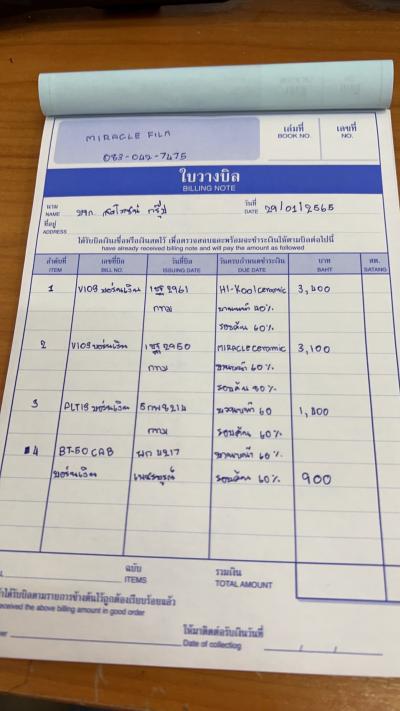 MIRACLE FILM
083-042-7475
เล่มที่ BOOK NO.
เลขที่ NO.
ใบวางบิล
BILLING NOTE
นาม NAME หจก.
วันที่ DATE 29/01/2565
ที่อยู่ ADDRESS
ได้รับบิลเงินเชื่อหรือเงินสดไว้ เพื่อตรวจสอบและพร้อมจะชำระเงินให้ตามบิลต่อไปนี้
have already received billing note and will pay the amount as followed
ลำดับที่ เลขที่บิล วันที่บิล วันครบกำหนดชำระเงิน บาท สต.
ITEM BILL NO. ISSUING DATE DUE DATE BAHT SATANG
1 VIOS 2961 HI-Kool ceramic 3,400
กทม บานหน้า 40%
รอบคัน 60%
2 VIOS 2950 MIRACLE ceramic 3,100
กทม บานหน้า 60%
รอบคัน 80%
3 5กษ8214 บานหน้า 60 1,400
กทม รอบคัน 60%
4 BT-50 CAB ผก 4217 บานหน้า 60%
เพชรบูรณ์ รอบคัน 60% 900
ฉบับ รวมเงิน
ITEMS TOTAL AMOUNT
ได้รับบิลตามรายการข้างต้นไว้ถูกต้องเรียบร้อยแล้ว
received the above billing amount in good order
ให้มาติดต่อรับเงินวันที่
Date of collecting / /